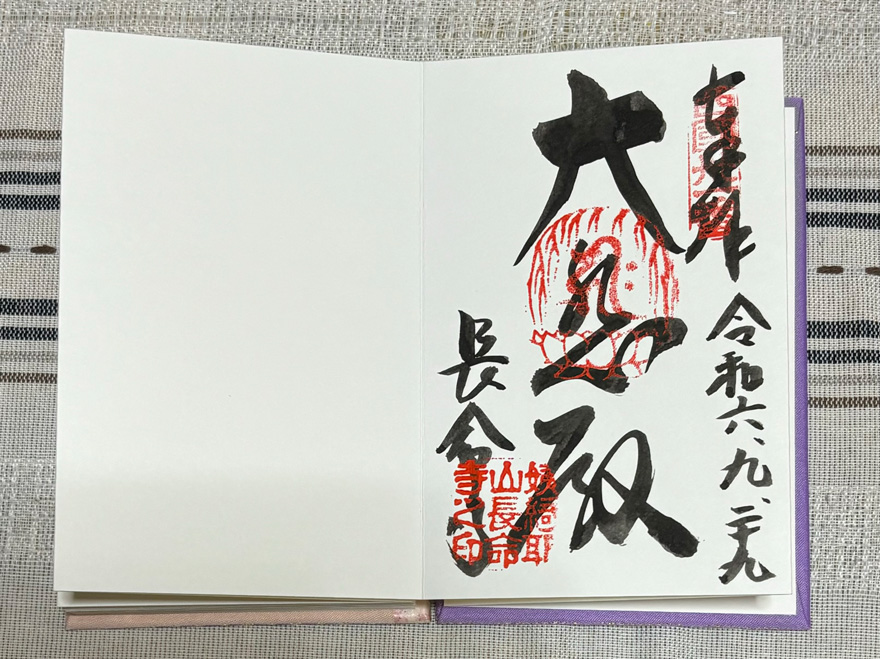 奉拝
令和六、九、二十九
大悲殿
長命寺
姨綺耶
山長命
寺之印